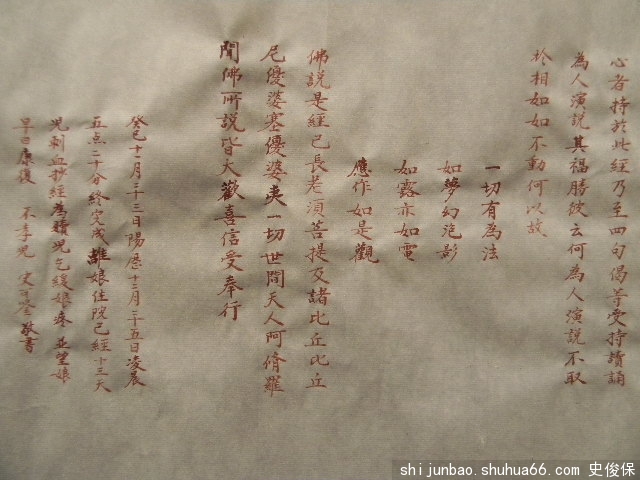 心者持於此經乃至四句偈等受持讀誦
為人演說其福勝彼云何為人演說不取
於相如如不動何以故
一切有為法
如夢幻泡影
如露亦如電
應作如是觀
佛說是經已長老須菩提及諸比丘比丘
尼優婆塞優婆夷一切世間天人阿脩羅
聞佛所說皆大歡喜信受奉行
癸巳十一月二十三日陽歷十二月二十五日凌晨
五点二十分終完成離娘住院已經十三天
児刺血抄經為贖児乞緩娘疼並望娘
早日康復 不孝児 史 敬書
shijunbao.shuhua66.com 史俊保